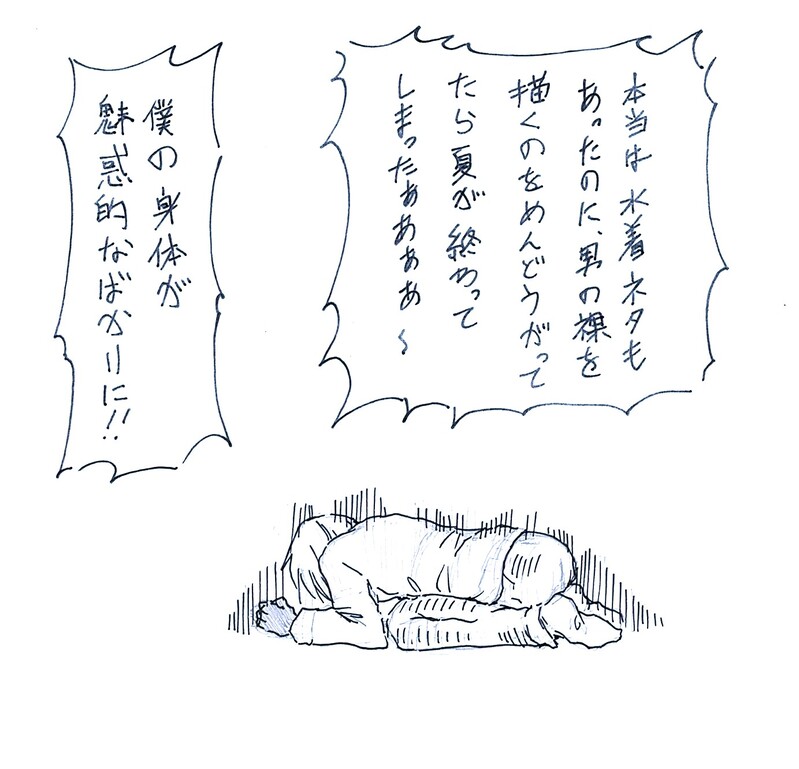 本当は水着ネタも
あったのに、男の裸を
描くのをめんどうがって
たら夏が終わって
しまったぁぁぁぁ〜
僕の身体が
魅惑的なばかりに!!